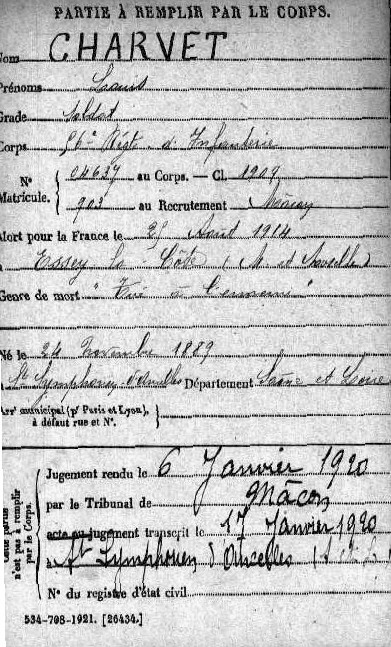 PARTIE À REMPLIR PAR LE CORPS.
Nom CHARVET
Prénoms Louis
Grade soldat
Corps 56e Régt d'Infanterie
N° Matricule. 04637 au Corps. — Cl. 1909
903 au Recrutement Mâcon
Mort pour la France le 25 Août 1914
à Essey la Côte (M. et Moselle)
Genre de mort "Tué à l'ennemi"
Né le 24 Novembre 1889
à St Symphorien d'Ancelles Département Saône et Loire
Arrt municipal (pr Paris et Lyon), à défaut rue et N°.
Cette partie n'est pas à remplir par le Corps.
Jugement rendu le 6 Janvier 1920
par le Tribunal de Mâcon
acte ou jugement transcrit le 17 Janvier 1920
à St Symphorien d'Ancelles
N° du registre d'état civil
534-708-1921. [26434.]